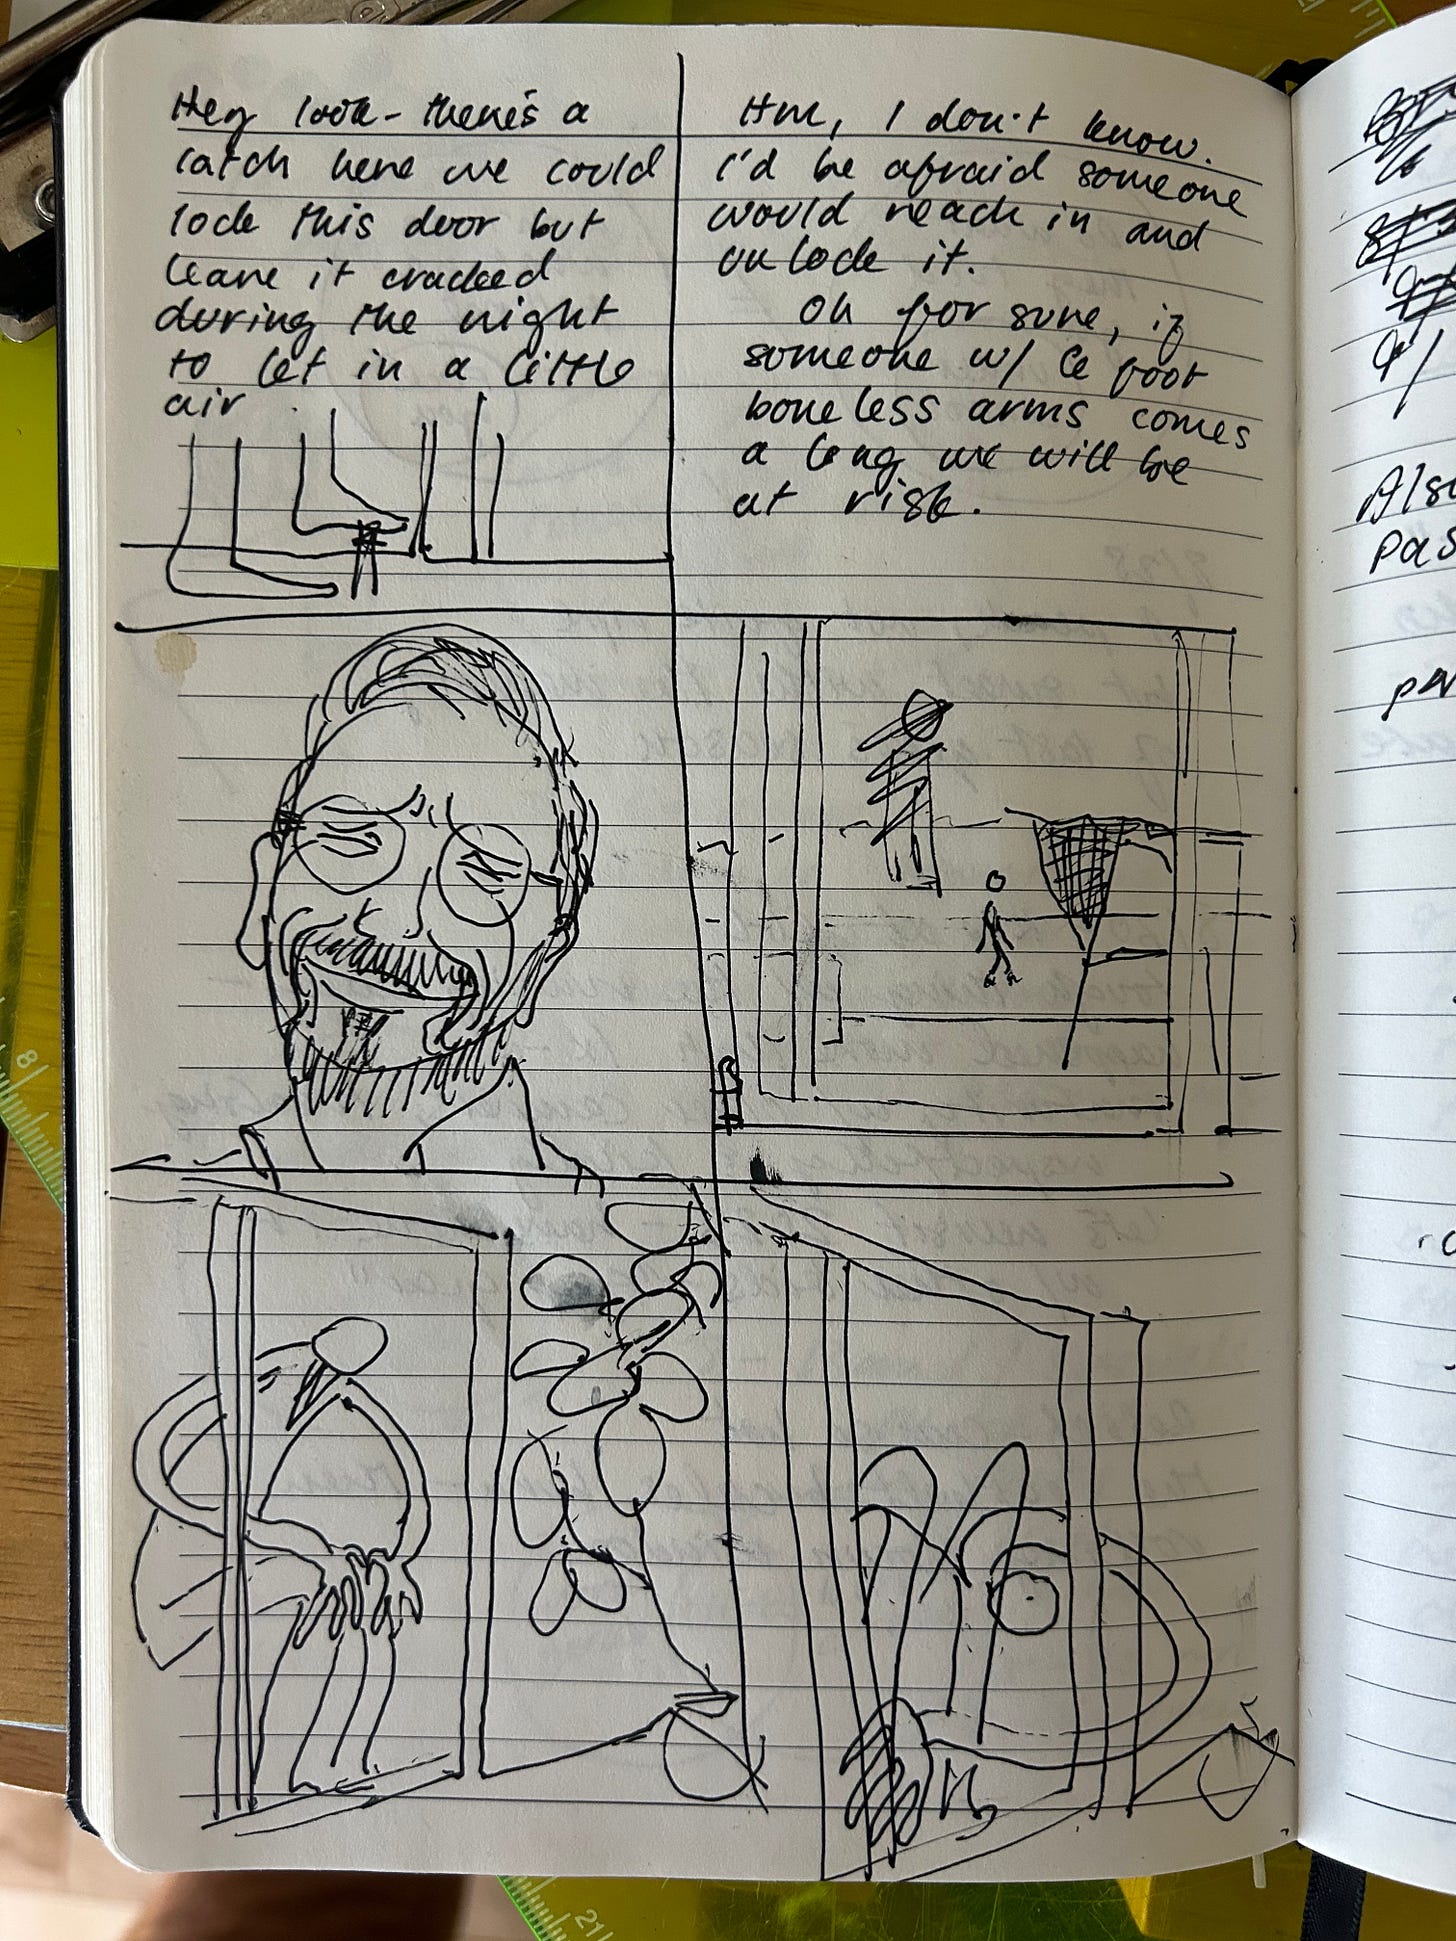 Hey look - there's a
latch here we could
lock this door but
leave it cracked
during the night
to let in a little
air.
Hm, I don't know.
I'd be afraid someone
would reach in and
unlock it.
Oh for sure, if
someone w/ 6 foot
boneless arms comes
along we will be
at risk.
Also
pas
8
21